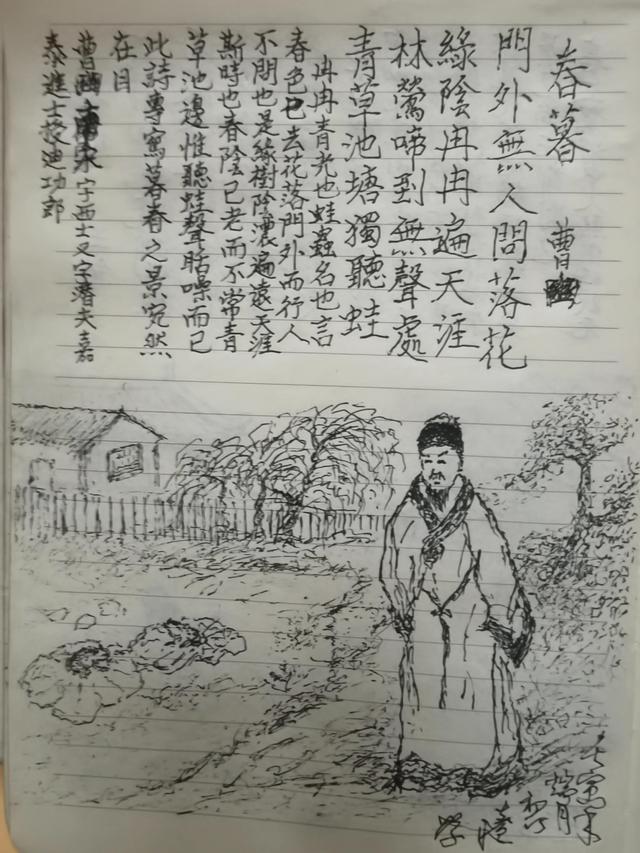 春暮 曹
門外無人問落花
綠陰冉冉遍天涯
林鶯啼到無聲處
青草池塘獨聽蛙
冉冉青光也蛙蟲名也言
春色已去花落門外而行人
不問也是緣樹陰濃遍遠天涯
斯時也春陰已老而不常青
草池邊惟聽蛙聲聒噪而已
此詩專寫暮春之景宛然
在目
曹 字西士又字潛夫嘉
泰進士授迪功郎